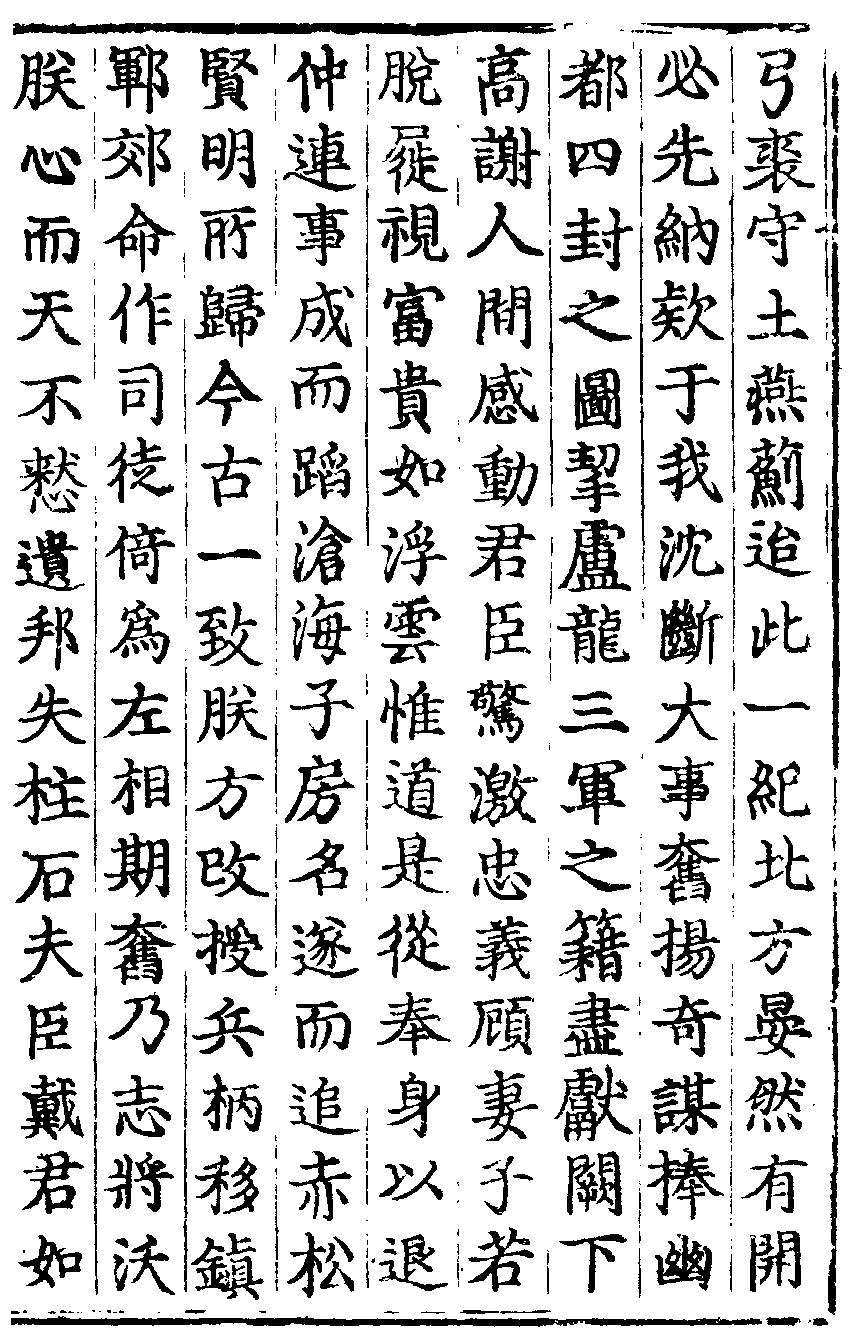 弓裘守土燕薊迨此一紀北方晏然有開
必先納欵于我沈斷大事奮揚奇謀捧幽
都四封之圖挈盧龍三軍之籍盡獻闕下
高謝人間感動君臣驚激忠義顧妻子若
脫屣視富貴如浮雲惟道是從奉身以退
仲連事成而蹈滄海子房名遂而追赤松
賢明所歸今古一致朕方改授兵柄移鎮
鄆郊命作司徒倚爲左相期奮乃志將沃
朕心而天不憖遺邦失柱石夫臣戴君如